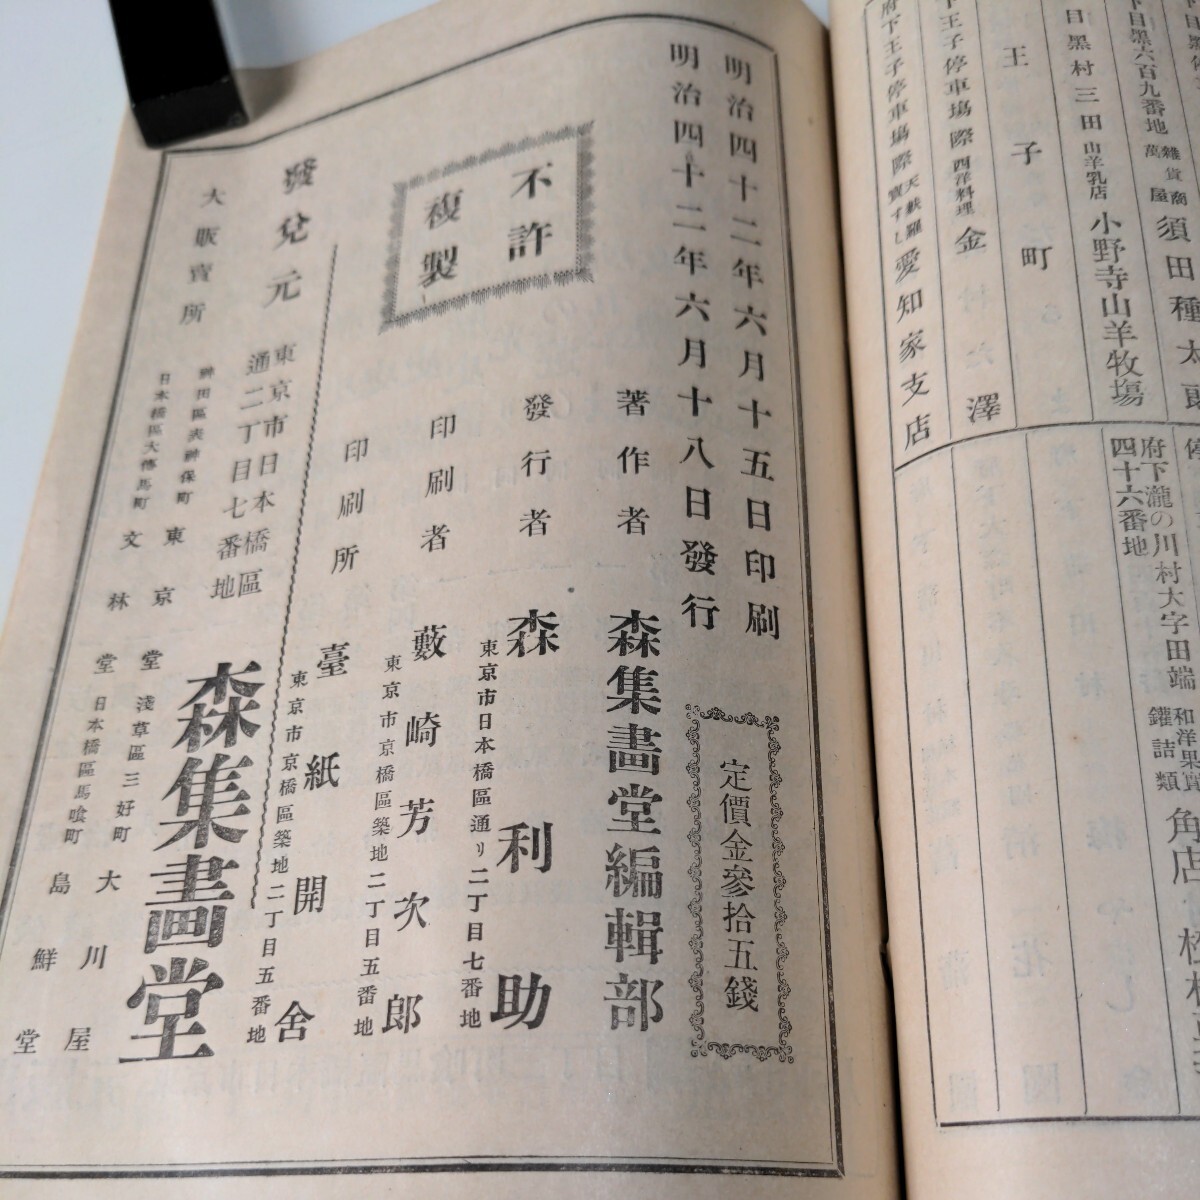 下目黒六百九番地 雑貨商萬屋 須田種太郎
目黒村三田 山羊乳店 小野寺山羊牧塲
王子町
下王子停車塲際 西洋料理 金澤
府下王子停車塲際 天麩羅寶ずし 愛知家支店
府下瀧の川村大字田端四十六番地 和洋果實鑵詰類 角店
明治四十二年六月十五日印刷
明治四十二年六月十八日發行
定價金參拾五錢
不許
複製
著作者 森集畵堂編輯部
發行者 東京市日本橋區通り二丁目七番地 森利助
印刷者 東京市京橋區築地二丁目五番地 藪崎芳次郎
印刷所 東京市京橋區築地二丁目五番地 臺紙開舍
發兌元 東京市日本橋區通二丁目七番地 森集畵堂
大販賣所
神田區表神保町 東京堂
淺草區三好町 大川屋
日本橋區大傳馬町 文林堂
日本橋區馬喰町 島鮮堂